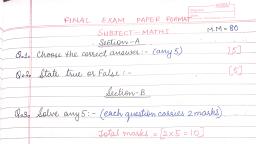 FINAL EXAM PAPER FORMAT
SUBJECT - MATHS M.M = 80
Section - A
Q.1. Choose the correct answer :- (any 5) [5]
Q.2. State true or False :- [5]
Section - B
Q.3. Solve any 5 :- (each question carries 2 marks)
Total marks = [2×5=10]